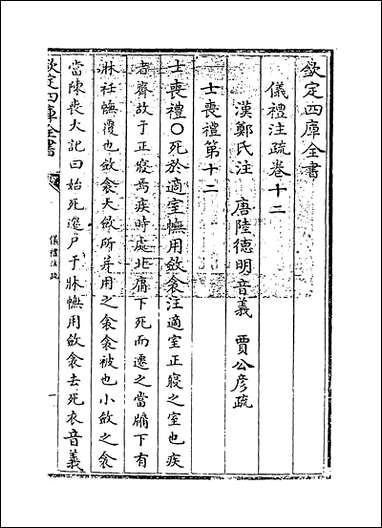 欽定四庫全書
儀禮注疏卷十二
漢鄭氏注 唐陸德明音義 賈公彥疏
士喪禮第十二
士喪禮○死於適室幠用斂衾注適室正寢之室也疾
者齊故于正寢焉疾時處北牖下死而遷之當牖下有
牀衽幠覆也斂衾大斂所并用之衾衾被也小斂之衾
當陳喪大記曰始死遷尸于牀幠用斂衾去死衣音義
欽定四庫全書
儀禮注疏
一